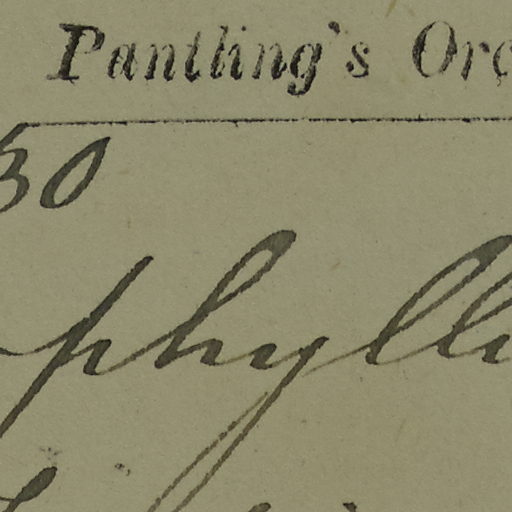 Pantling's Orc
30
phylli